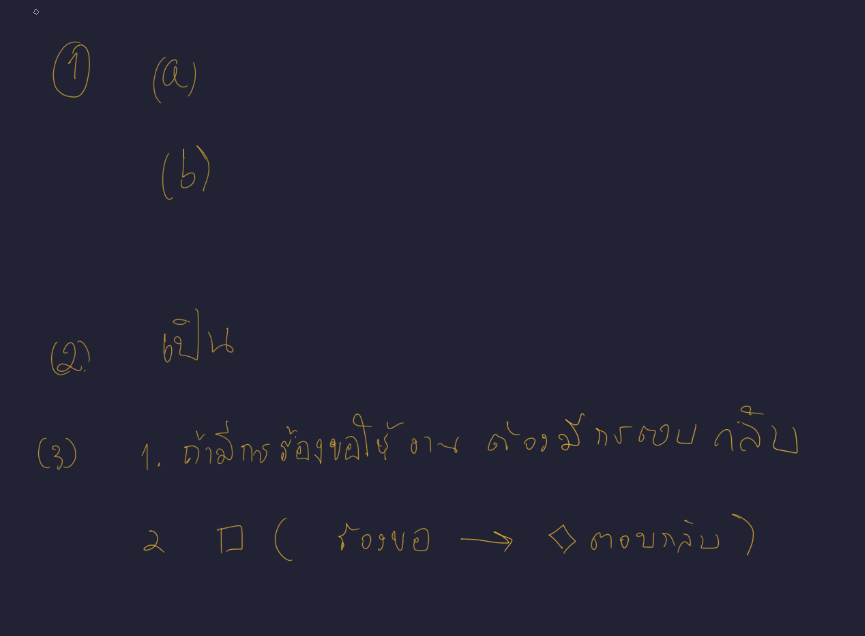 ① (a)
(b)
(2) เป็น
(3) 1. ถ้ามีการร้องขอใช้งาน ต้องมีการตอบกลับ
2 □ ( ร้องขอ → ◇ ตอบกลับ )